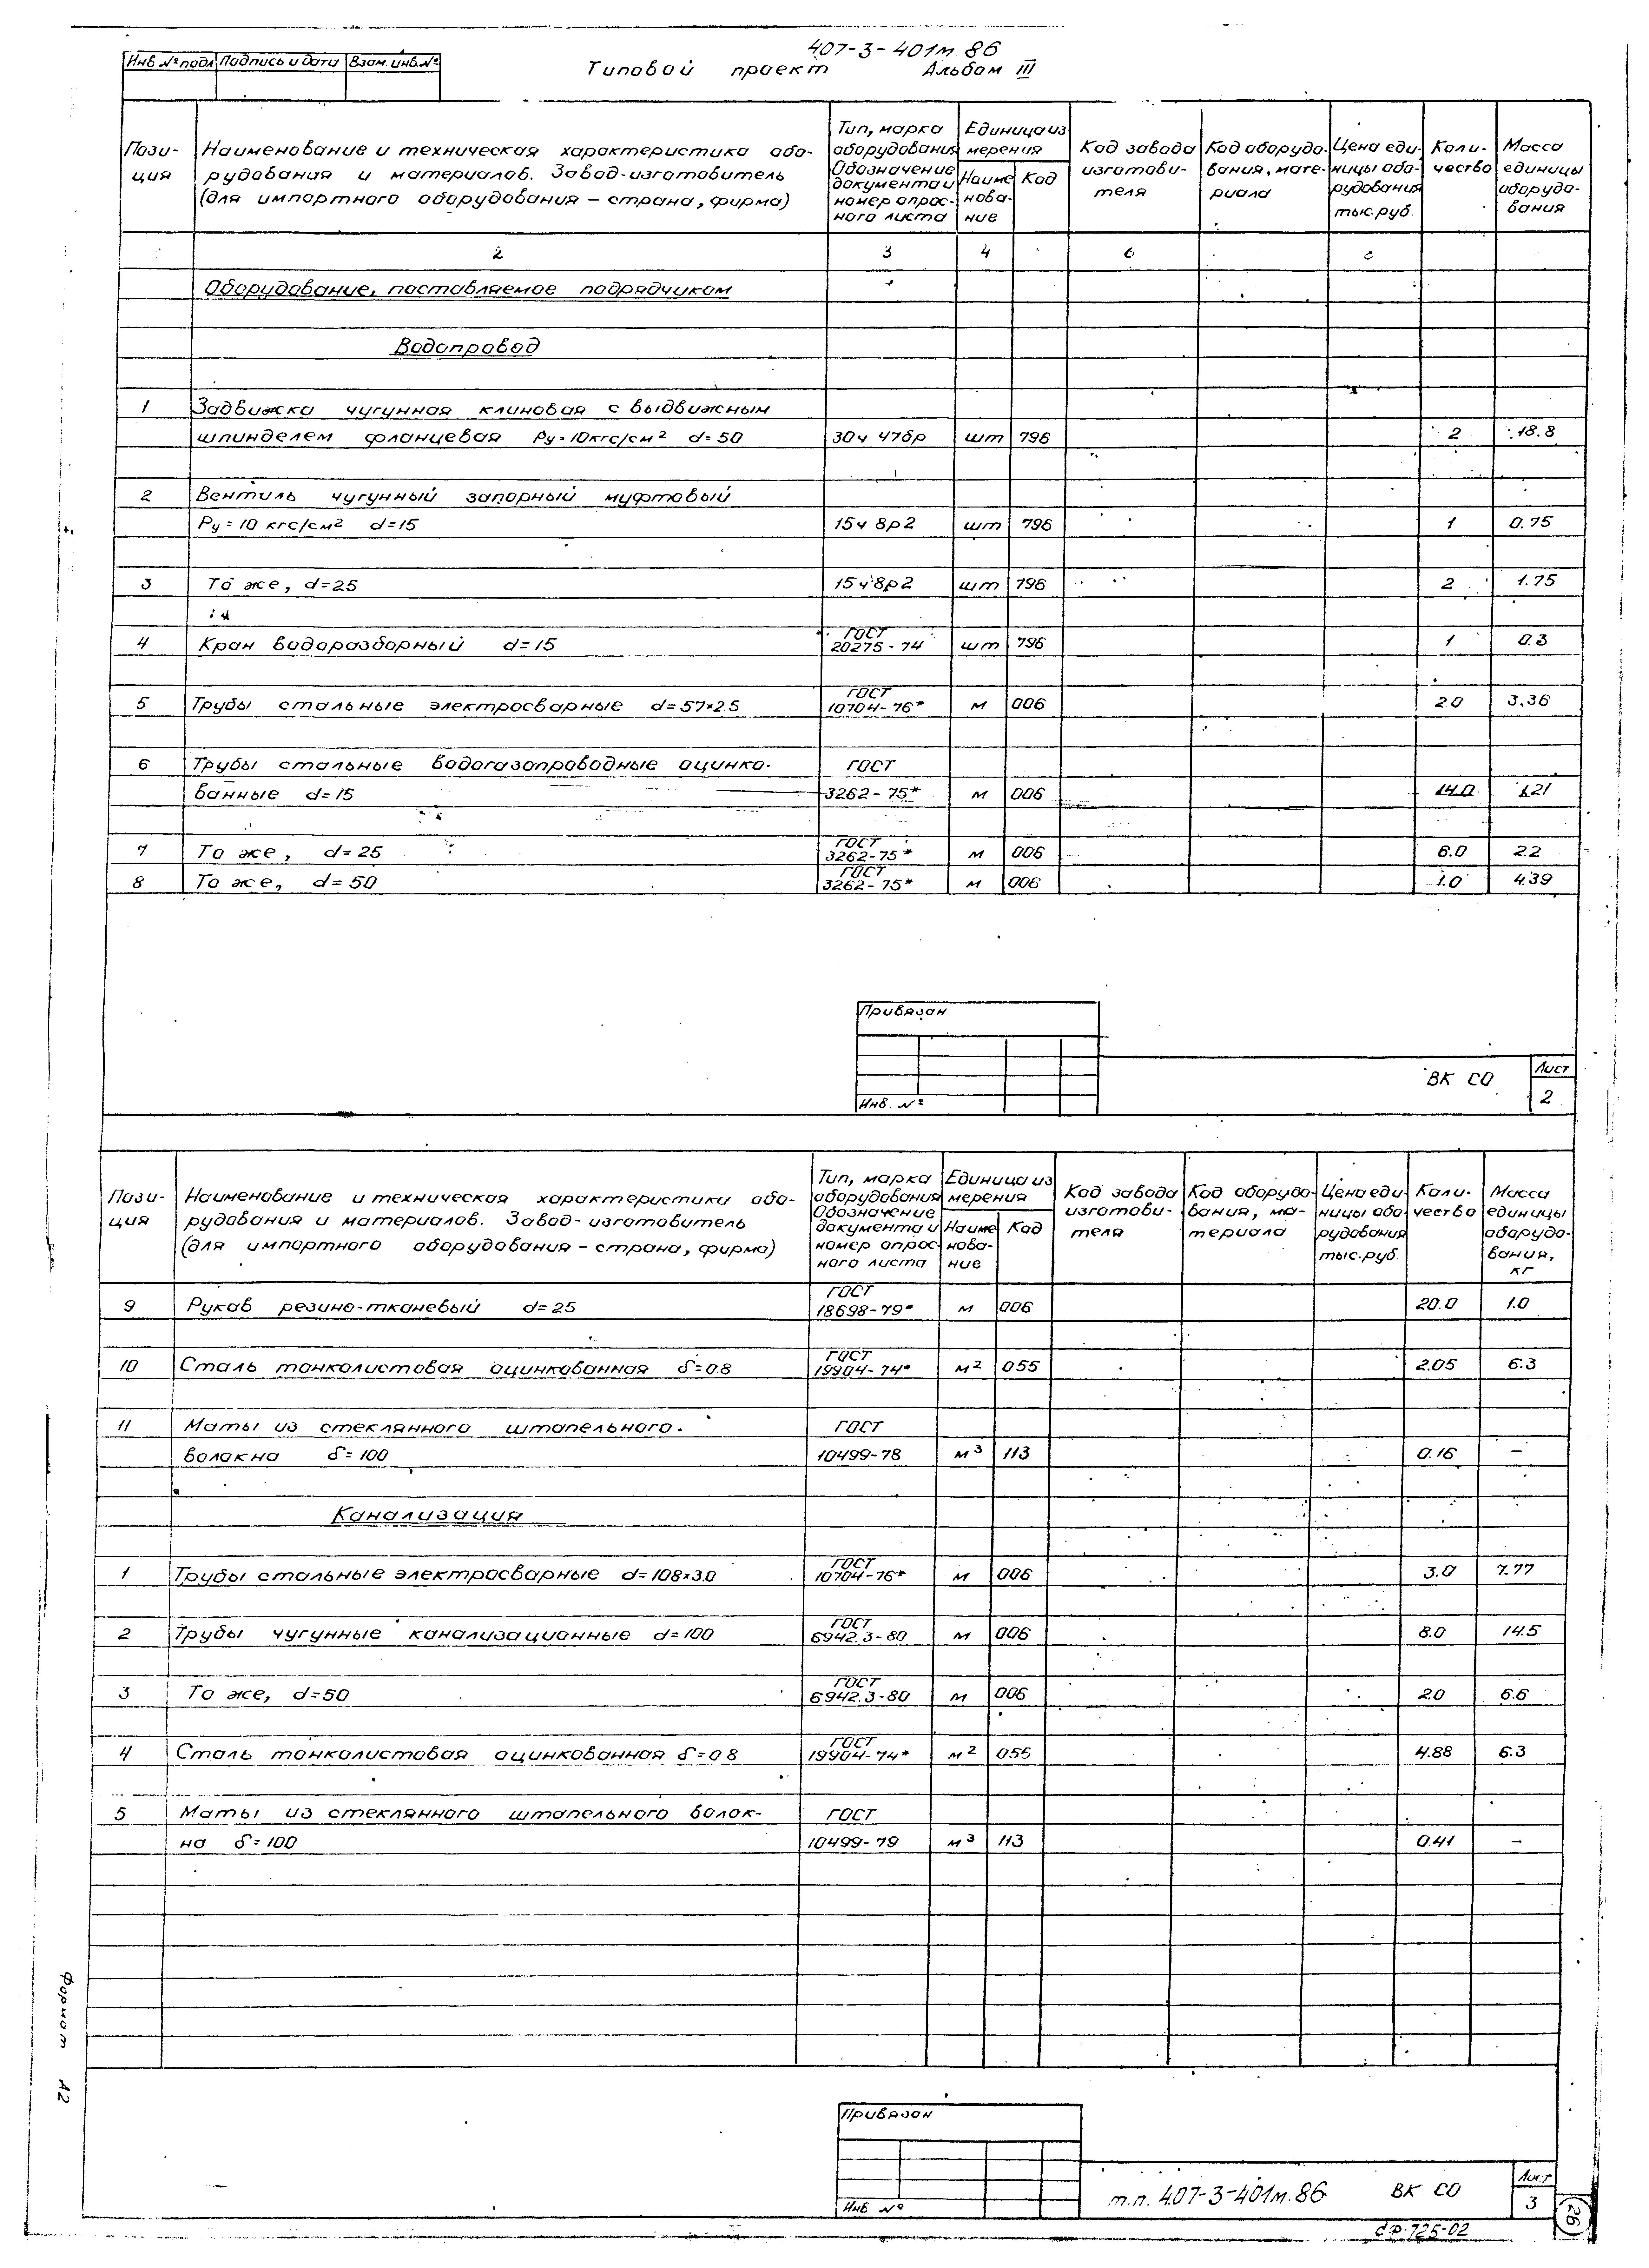 Инв. № подл. Подпись и дата Взам. инв. №
407-3-401м.86
Типовой проект Альбом III
Пози-
ция
Наименование и техническая характеристика обо-
рудования и материалов. Завод-изготовитель
(для импортного оборудования – страна, фирма)
Тип, марка
оборудования
Обозначение
документа и
номер опрос-
ного листа
Единица из-
мерения
Наиме-
нова-
ние
Код
Код завода
изготови-
теля
Код оборудо-
вания, мате-
риала
Цена еди-
ницы обо-
рудования
тыс.руб.
Коли-
чество
Масса
единицы
оборудо-
вания
2 3 4 6
Оборудование, поставляемое подрядчиком
Водопровод
1 Задвижка чугунная клиновая с выдвижным
шпинделем фланцевая Ру=10кгс/см² d=50 30ч 47бр шт 796 2 18.8
2 Вентиль чугунный запорный муфтовый
Ру=10 кгс/см² d=15 15ч 8р2 шт 796 1 0.75
3 То же, d=25 15ч 8р2 шт 796 2 1.75
ГОСТ
4 Кран водоразборный d=15 20275-74 шт 796 1 0.3
ГОСТ
5 Трубы стальные электросварные d=57×2.5 10704-76* м 006 2.0 3.36
6 Трубы стальные водогазопроводные оцинко- ГОСТ
ванные d=15 3262-75* м 006 14.0 1.21
ГОСТ
7 То же, d=25 3262-75* м 006 6.0 2.2
ГОСТ
8 То же, d=50 3262-75* м 006 1.0 4.39
Привязан
Инв. №
ВК СО
Лист
2
Пози-
ция
Наименование и техническая характеристика обо-
рудования и материалов. Завод-изготовитель
(для импортного оборудования – страна, фирма)
Тип, марка
оборудования
Обозначение
документа и
номер опрос-
ного листа
Единица из-
мерения
Наиме-
нова-
ние
Код
Код завода
изготови-
теля
Код оборудо-
вания, ма-
териала
Цена еди-
ницы обо-
рудования
тыс.руб.
Коли-
чество
Масса
единицы
оборудо-
вания,
кг
ГОСТ
9 Рукав резино-тканевый d=25 18698-79* м 006 20.0 1.0
ГОСТ
10 Сталь тонколистовая оцинкованная δ=0.8 19904-74* м² 055 2.05 6.3
11 Маты из стеклянного штапельного ГОСТ
волокна δ=100 10499-78 м³ 113 0.16 –
Канализация
ГОСТ
1 Трубы стальные электросварные d=108×3.0 10704-76* м 006 3.0 7.77
ГОСТ
2 Трубы чугунные канализационные d=100 6942.3-80 м 006 8.0 14.5
ГОСТ
3 То же, d=50 6942.3-80 м 006 2.0 6.6
ГОСТ
4 Сталь тонколистовая оцинкованная δ=0.8 19904-74* м² 055 4.88 6.3
5 Маты из стеклянного штапельного волок- ГОСТ
на δ=100 10499-79 м³ 113 0.41 –
Формат А2
Привязан
Инв №
т.п. 407-3-401м.86 ВК СО
Лист
3
26
сф.725-02